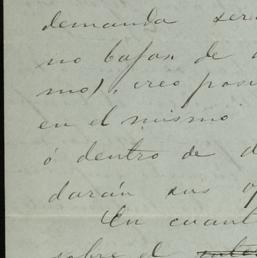 demanda ser
no bajan de
mos), creo posi
en el mismo
ó dentro de d
darán sus o
En cuant
sobre el